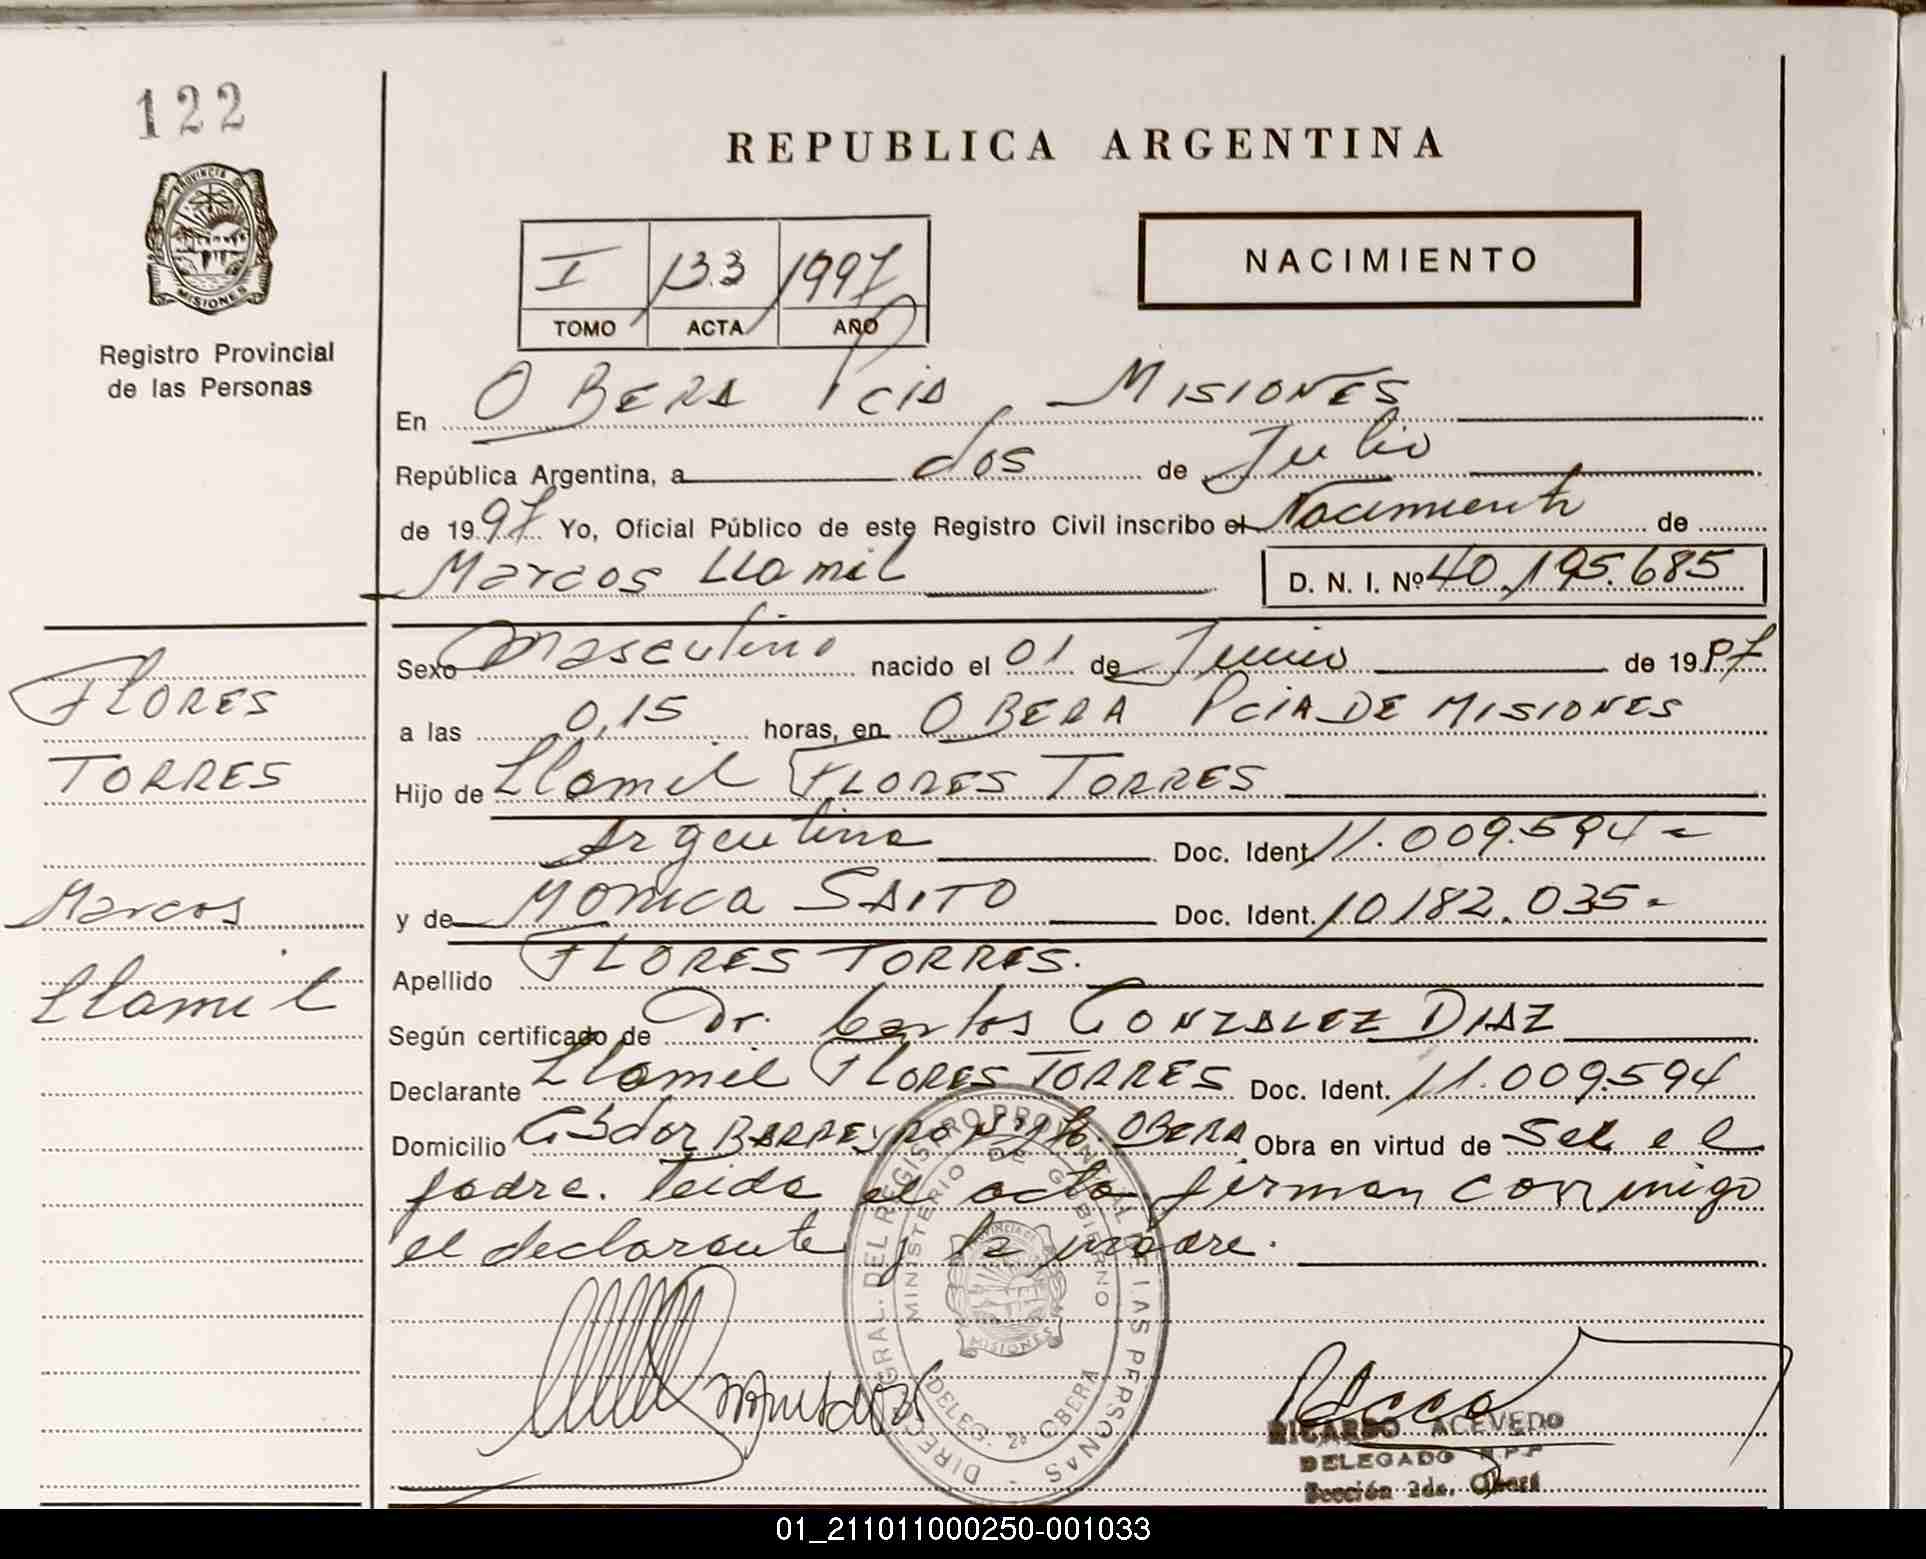 122
REPUBLICA ARGENTINA
PROVINCIA DE
MISIONES
NACIMIENTO
I 133 1997
TOMO ACTA AÑO
Registro Provincial
de las Personas
En OBERA Pcia MISIONES
República Argentina, a dos de Julio
de 1997 Yo, Oficial Público de este Registro Civil inscribo el Nacimiento de
Marcos Llamil D. N. I. Nº 40.195.685
Sexo Masculino nacido el 01 de Junio de 1997
a las 0,15 horas, en OBERA Pcia DE MISIONES
Hijo de Llamil FLORES TORRES
Argentina Doc. Ident. 11.009.594-
y de Monica SAITO Doc. Ident. 10182.035-
Apellido FLORES TORRES.
Según certificado de Dr. Carlos GONZALEZ DIAZ
Declarante Llamil FLORES TORRES Doc. Ident. 11.009.594
Domicilio BARREYRO OBERA Obra en virtud de Ser el
padre. Leida el acta firman conmigo
el declarante y la madre.
FLORES
TORRES
Marcos
Llamil
DIREC. GRAL. DEL REGISTRO PROVINCIAL DE LAS PERSONAS
MINISTERIO DE GOBIERNO
DELEG. 2ª OBERA
MISIONES
RICARDO ACEVEDO
DELEGADO R.P.P
Sección 2da. Oberá
01_211011000250-001033